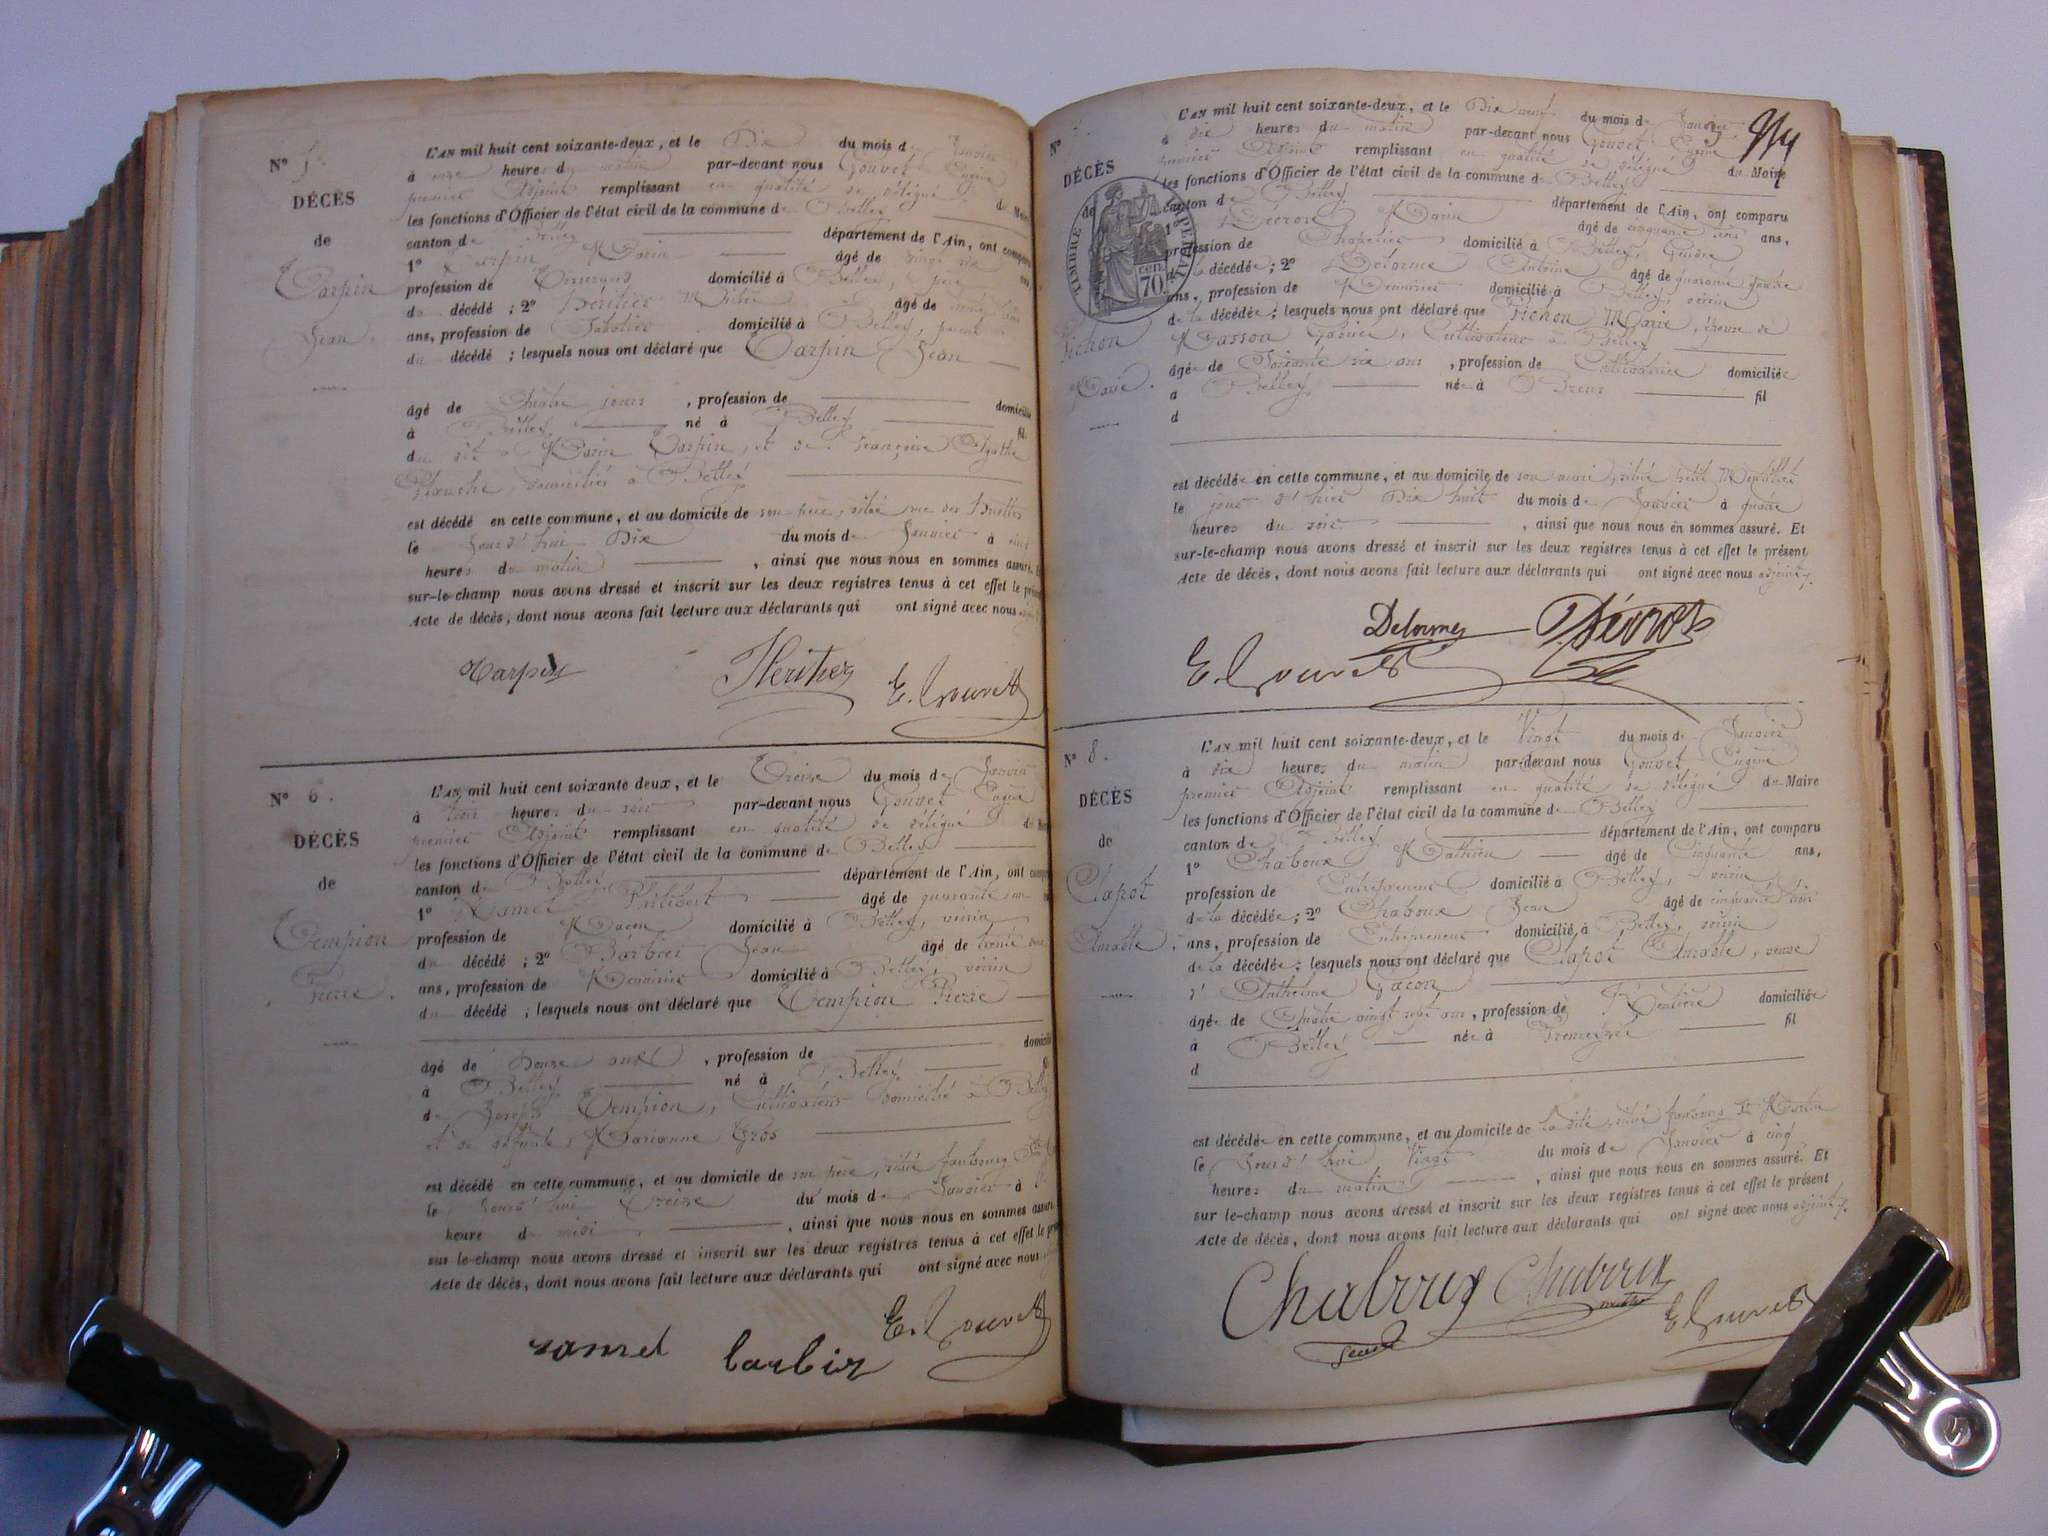 N° 5.
DÉCÈS
de
Tarpin
Jean.
L'AN mil huit cent soixante-deux, et le Dix du mois de Janvier
à onze heures du matin par-devant nous Gouvet Eugène
premier Adjoint remplissant en qualité de délégué du Maire
les fonctions d'Officier de l'état civil de la commune de Belley
canton de Belley département de l'Ain, ont comparu
1° Tarpin Marin âgé de vingt six ans
profession de Tisserand domicilié à Belley, père
du décédé ; 2° Héritier âgé de
ans, profession de Sabotier domicilié à Belley, parent
du décédé ; lesquels nous ont déclaré que Tarpin Jean
âgé de Quatre jours , profession de domicilié
à Belley né à Belley fil
du dit Marin Tarpin, et de Françoise Agathe
Planche domiciliés à Belley
est décédé en cette commune, et au domicile de son père, située rue des
le Jourd'hui Dix du mois de Janvier à cinq
heures du matin , ainsi que nous nous en sommes assuré. Et
sur-le-champ nous avons dressé et inscrit sur les deux registres tenus à cet effet le présent
Acte de décès, dont nous avons fait lecture aux déclarants qui ont signé avec nous
Tarpin Heritier E. Gouvet
N° 6.
DÉCÈS
de
Tempion
Pierre.
L'AN mil huit cent soixante deux, et le Treize du mois de Janvier
à trois heures du soir par-devant nous Gouvet Eugène
premier Adjoint remplissant en qualité de délégué du Maire
les fonctions d'Officier de l'état civil de la commune de Belley
canton de Belley département de l'Ain, ont comparu
1° Ramel Philibert âgé de quarante un
profession de Maçon domicilié à Belley, voisin
du décédé ; 2° Barbier Jean âgé de trente
ans, profession de Menuisier domicilié à Belley, voisin
du décédé ; lesquels nous ont déclaré que Tempion Pierre
âgé de Douze ans , profession de domicilié
à Belley né à Belley fil
de Joseph Tempion, Cultivateur domicilié à Belley
et de défunte Marianne Gros
est décédé en cette commune, et au domicile de son père, situé faubourg St
le Jourd'hui Treize du mois de Janvier à
heure de midi , ainsi que nous nous en sommes assuré
sur-le-champ nous avons dressé et inscrit sur les deux registres tenus à cet effet le présent
Acte de décès, dont nous avons fait lecture aux déclarants qui ont signé avec nous
ramel barbier E. Gouvet
N°
DÉCÈS
de
TIMBRE IMPÉRIAL
70 cen.
Pichon
Marie.
L'AN mil huit cent soixante-deux, et le Dix neuf du mois de Janvier
à dix heures du matin par-devant nous Gouvet Eugène
premier Adjoint remplissant en qualité de délégué du Maire
les fonctions d'Officier de l'état civil de la commune de Belley
canton de Belley département de l'Ain, ont comparu
1° Marin âgé de cinquante trois ans,
profession de Chapelier domicilié à Belley, Gendre
de la décédée ; 2° Delorme Antoine âgé de quarante quatre
ans, profession de Menuisier domicilié à Belley, voisin
de la décédée ; lesquels nous ont déclaré que Pichon Marie, épouse de
Masson Gabriel, Cultivateur à Belley
âgée de Soixante six ans , profession de Cultivatrice domiciliée
à Belley née à Brens fil
d
est décédée en cette commune, et au domicile de son mari, situé
le jour d'hier Dix huit du mois de Janvier à quatre
heures du soir , ainsi que nous nous en sommes assuré. Et
sur-le-champ nous avons dressé et inscrit sur les deux registres tenus à cet effet le présent
Acte de décès, dont nous avons fait lecture aux déclarants qui ont signé avec nous adjoint.
Delorme
E. Gouvet
N° 8.
DÉCÈS
de
Clapot
Aimable.
L'AN mil huit cent soixante-deux, et le Vingt du mois de Janvier
à dix heures du matin par-devant nous Gouvet Eugène
premier Adjoint remplissant en qualité de délégué du Maire
les fonctions d'Officier de l'état civil de la commune de Belley
canton de Belley département de l'Ain, ont comparu
1° Chaboux Mathieu âgé de Cinquante ans,
profession de Entrepreneur domicilié à Belley, voisin
de la décédée ; 2° Chaboux Jean âgé de cinquante trois
ans, profession de Entrepreneur domicilié à Belley, voisin
de la décédée ; lesquels nous ont déclaré que Clapot Aimable, veuve
d'Anthelme Gacon
âgée de Quatre vingt sept ans , profession de Rentière domiciliée
à Belley née à fil
d
est décédée en cette commune, et au domicile de la dite, situé faubourg St Martin
le Jourd'hui Vingt du mois de Janvier à cinq
heures du matin , ainsi que nous nous en sommes assuré. Et
sur le-champ nous avons dressé et inscrit sur les deux registres tenus à cet effet le présent
Acte de décès, dont nous avons fait lecture aux déclarants qui ont signé avec nous adjoint.
Chaboux Chaboux E. Gouvet